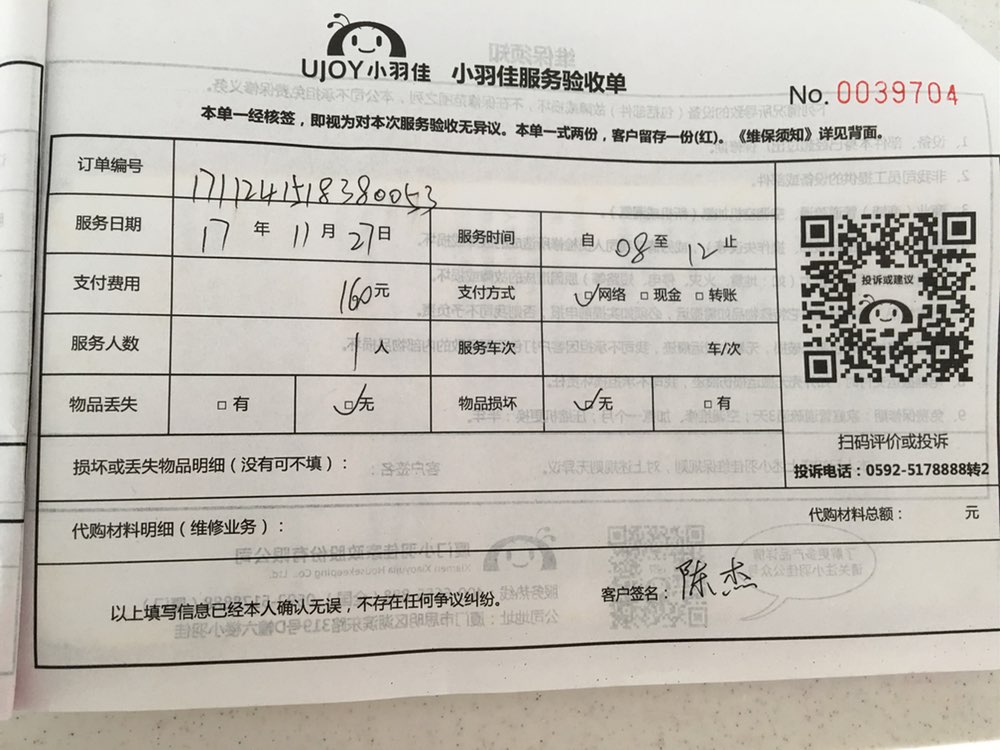 UJOY小羽佳 小羽佳服务验收单
No. 0039704
本单一经核签，即视为对本次服务验收无异议。本单一式两份，客户留存一份(红)。《维保须知》详见背面。
订单编号 171124151838０053
服务日期 17 年 11 月 27 日 服务时间 自 08 至 12 止
支付费用 160 元 支付方式 ☑网络 □现金 □转账
投诉或建议
服务人数 1 人 服务车次 车/次
物品丢失 □有 ☑无 物品损坏 ☑无 □有
扫码评价或投诉
投诉电话：0592-5178888转2
损坏或丢失物品明细（没有可不填）：
代购材料明细（维修业务）： 代购材料总额： 元
以上填写信息已经本人确认无误，不存在任何争议纠纷。 客户签名：陈杰